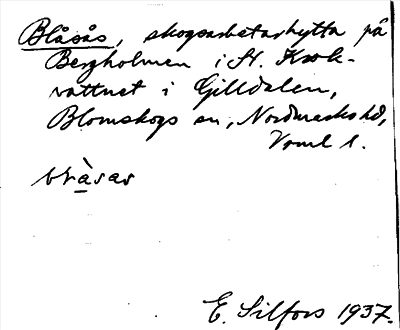 Blåsås, skogsarbetarhytta på
Bergholmen i St. Krok-
vattnet i Gilldalen,
Blomskogs sn, Nordmarks hd,
Vrml l.
blàsas
E. Silfors 1937.